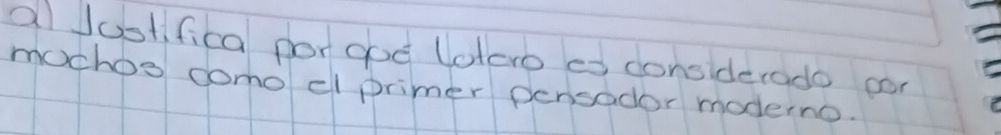 a) Justifica por qué Lutero es considerado por
muchos como el primer pensador moderno.